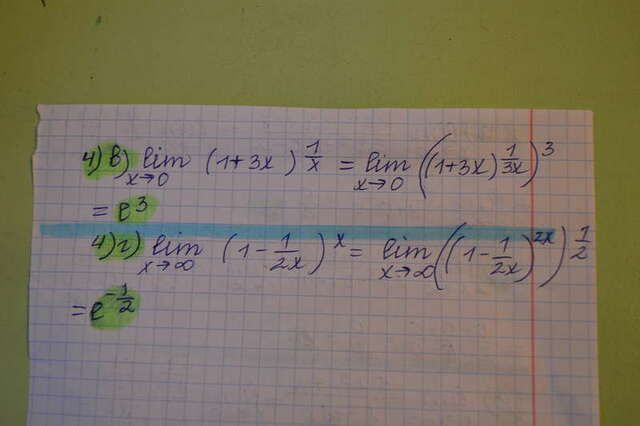 4) в) lim x→0 (1+3x)^(1/x) = lim x→0 ((1+3x)^(1/3x))^3
= e^3
4) г) lim x→∞ (1-1/2x)^x = lim x→∞ ((1-1/2x)^2x)^(1/2)
= e^(-1/2)